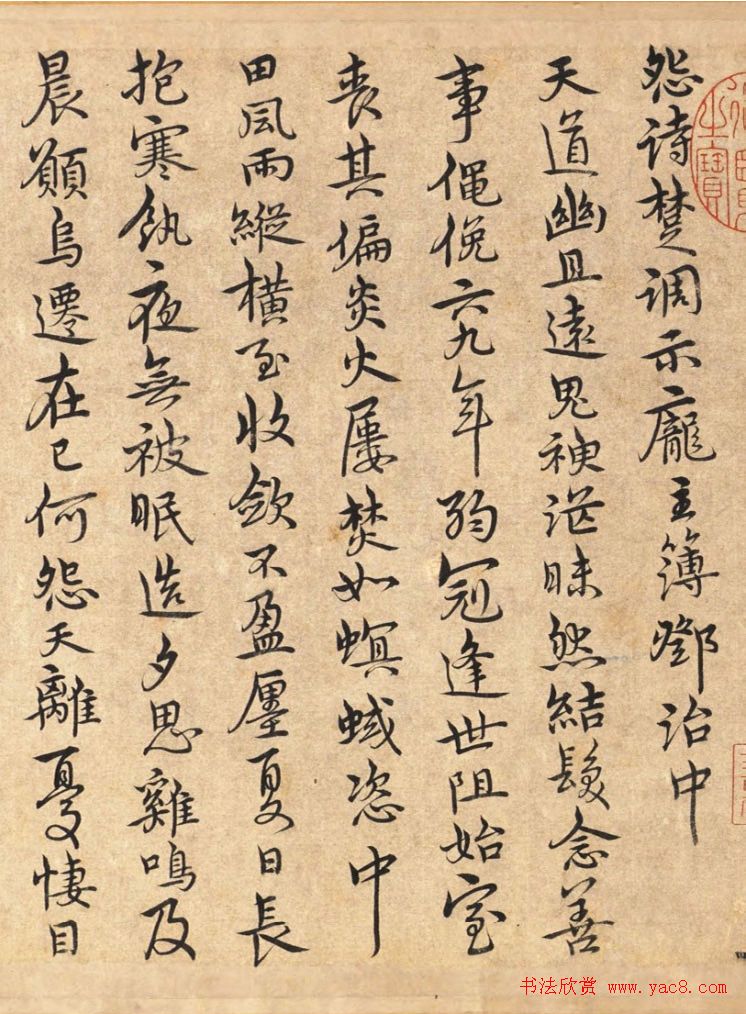 怨诗楚调示龐主簿鄧治中
天道幽且遠鬼神茫昧然結髮念善
事僶俛六九年弱冠逢世阻始室
喪其偏炎火屢焚如螟蜮恣中
田風雨縱橫至收斂不盈廛夏日長
抱寒飢夜無被眠造夕思雞鳴及
晨願烏遷在己何怨天離憂悽目
书法欣赏 www.yac8.com